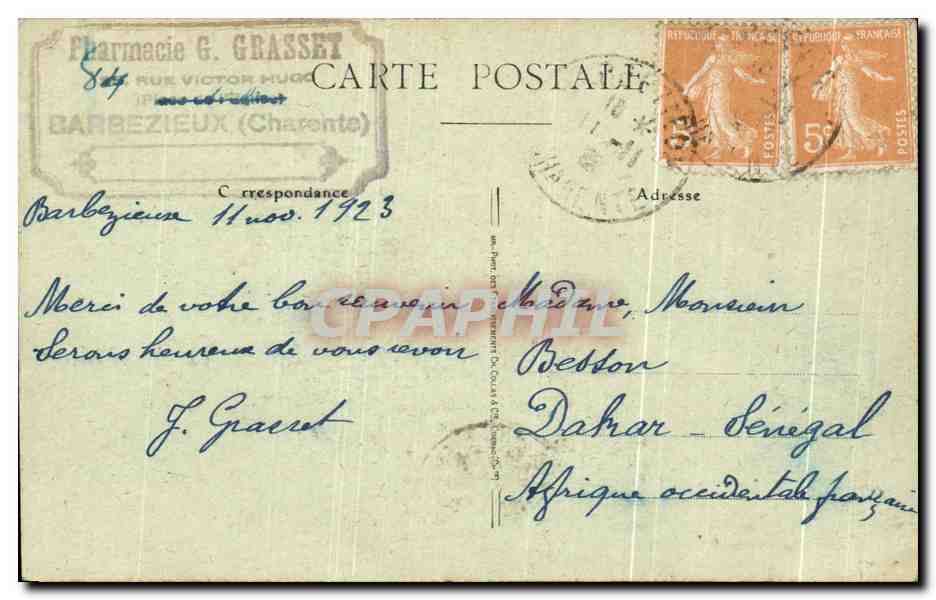 Pharmacie G. GRASSET
RUE VICTOR HUGO
BARBEZIEUX (Charente)
CARTE POSTALE
REPUBLIQUE FRANÇAISE
5c POSTES
REPUBLIQUE FRANÇAISE
5c POSTES
CHARENTE
Correspondance
Adresse
Barbezieux 11 nov. 1923
Merci de votre bon souvenir
Serons heureux de vous revoir
J. Grasset
Madame, Monsieur
Besson
Dakar - Sénégal
Afrique occidentale française
CPAPHIL